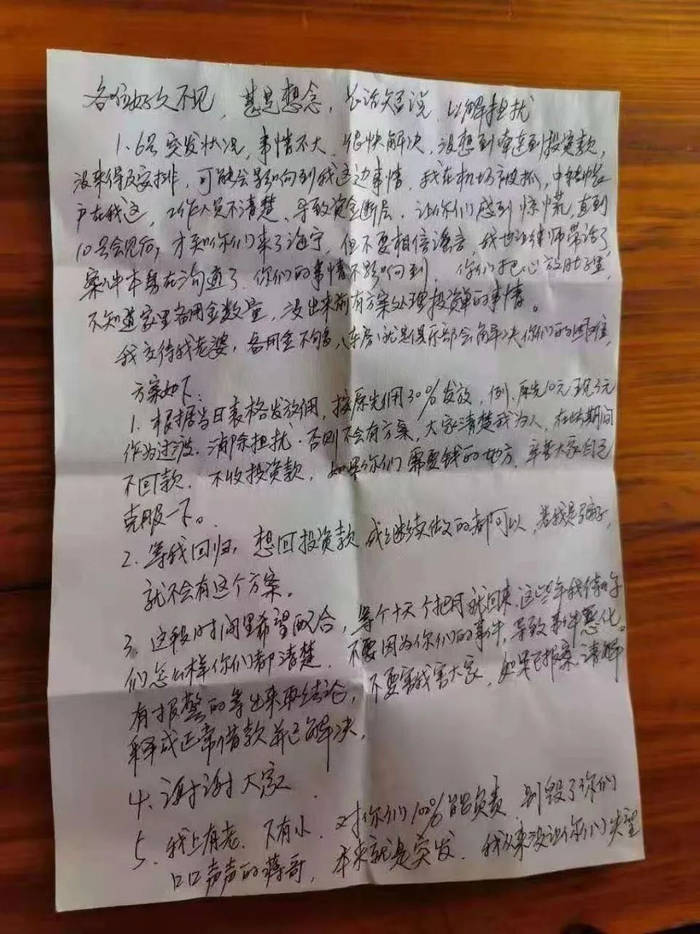 各位好久不见，甚是想念，长话短说，以解担扰
1、6号突发状况，事情不大，很快解决，没想到牵连到投资款，
没来得及安排，可能会影响到我这边事情，我在机场被抓，中转账
户在我这，工作人员不清楚，导致资金断层，让你们感到惊慌，直到
10号会见后，才知你们来了海宁，但不要相信谣言，我也让律师带话了
案件本身在沟通了，你们的事情不影响到，你们把心放肚里，
不知道家里备用金数量，没出来前有方案处理投资单的事情。
我交待我老婆，备用金不够，车房，就是俱乐部会解决你们的困难，
方案如下：
1、根据当日表格发放佣，按原先佣30%发放，例、原先10元现3元
作为过渡，消除担扰，否则不会有方案，大家清楚我为人，在此期间
不回款，不收投资款，如果你们需要钱的地方，辛苦大家自己
克服一下。
2、等我回归，想回投资款或继续做的都可以，若我是骗子，
就不会有这个方案。
3、这段时间里希望配合，等个十天个把月就回来，这些年我待你
们怎么样你们都清楚，不要因为你们的事件，导致事件恶化。
有报警的等出来取结论，不要害我害大家，如果已报案请解
释成正常借款并已解决，
4、谢谢大家
5、我上有老，下有小，对你们100%能负责，别毁了你们
口口声声的蒋哥，本来就是突发，我从来没让你们失望